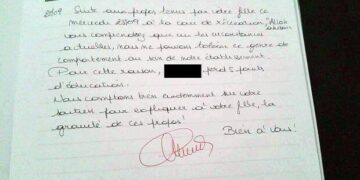 28/09 Suite aux propos tenus par votre fille ce
Mercredi 28/09 à la cour de récréation, "Allah
akbar"
vous comprendrez que vu les circonstances
actuelles, nous ne pouvons tolérer ce genre de
comportement au sein de notre établissement.
Pour cette raison, perd 5 points
d'éducation.
Nous comptons bien évidemment sur votre
soutien pour expliquer à votre fille, la
gravité de ces propos!
Bien à vous.